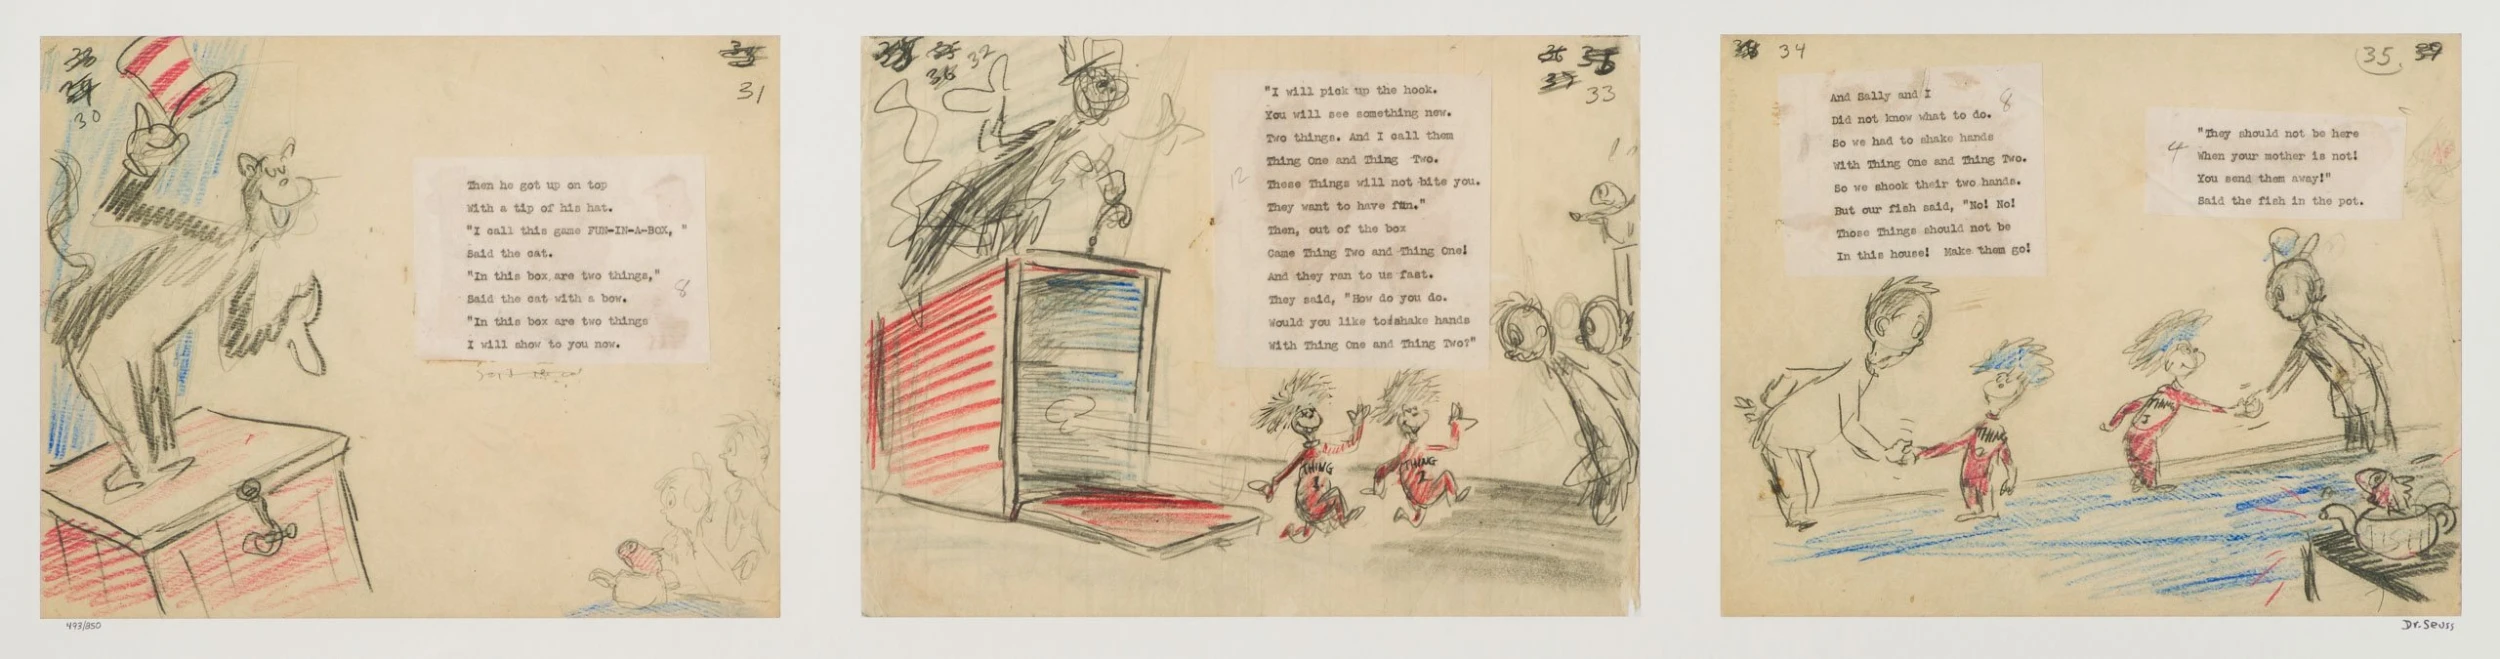 30
31
Then he got up on top
With a tip of his hat.
"I call this game FUN-IN-A-BOX, "
Said the cat.
"In this box are two things,"
Said the cat with a bow.
"In this box are two things
I will show to you now.
8
493/850
36 32
33
"I will pick up the hook.
You will see something new.
Two things. And I call them
Thing One and Thing Two.
These Things will not bite you.
They want to have fun."
Then, out of the box
Came Thing Two and Thing One!
And they ran to us fast.
They said, "How do you do.
Would you like to shake hands
With Thing One and Thing Two?"
12
THING
1
THING
2
34
35
And Sally and I
Did not know what to do.
So we had to shake hands
With Thing One and Thing Two.
So we shook their two hands.
But our fish said, "No! No!
Those Things should not be
In this house! Make them go!
8
"They should not be here
When your mother is not!
You send them away!"
Said the fish in the pot.
4
THING
2
THING
Dr. Seuss